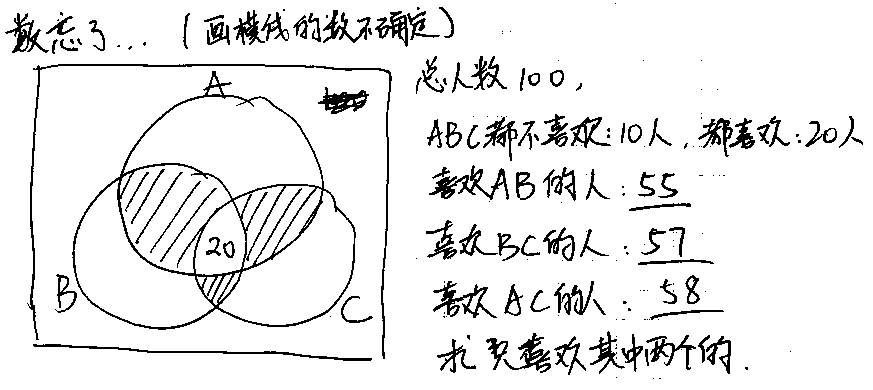 数忘了...（画横线的数不确定）
A
总人数100,
ABC都不喜欢:10人,都喜欢:20人
喜欢AB的人:55
20
喜欢BC的人:57
B
C
喜欢AC的人:58
求只喜欢其中两个的.